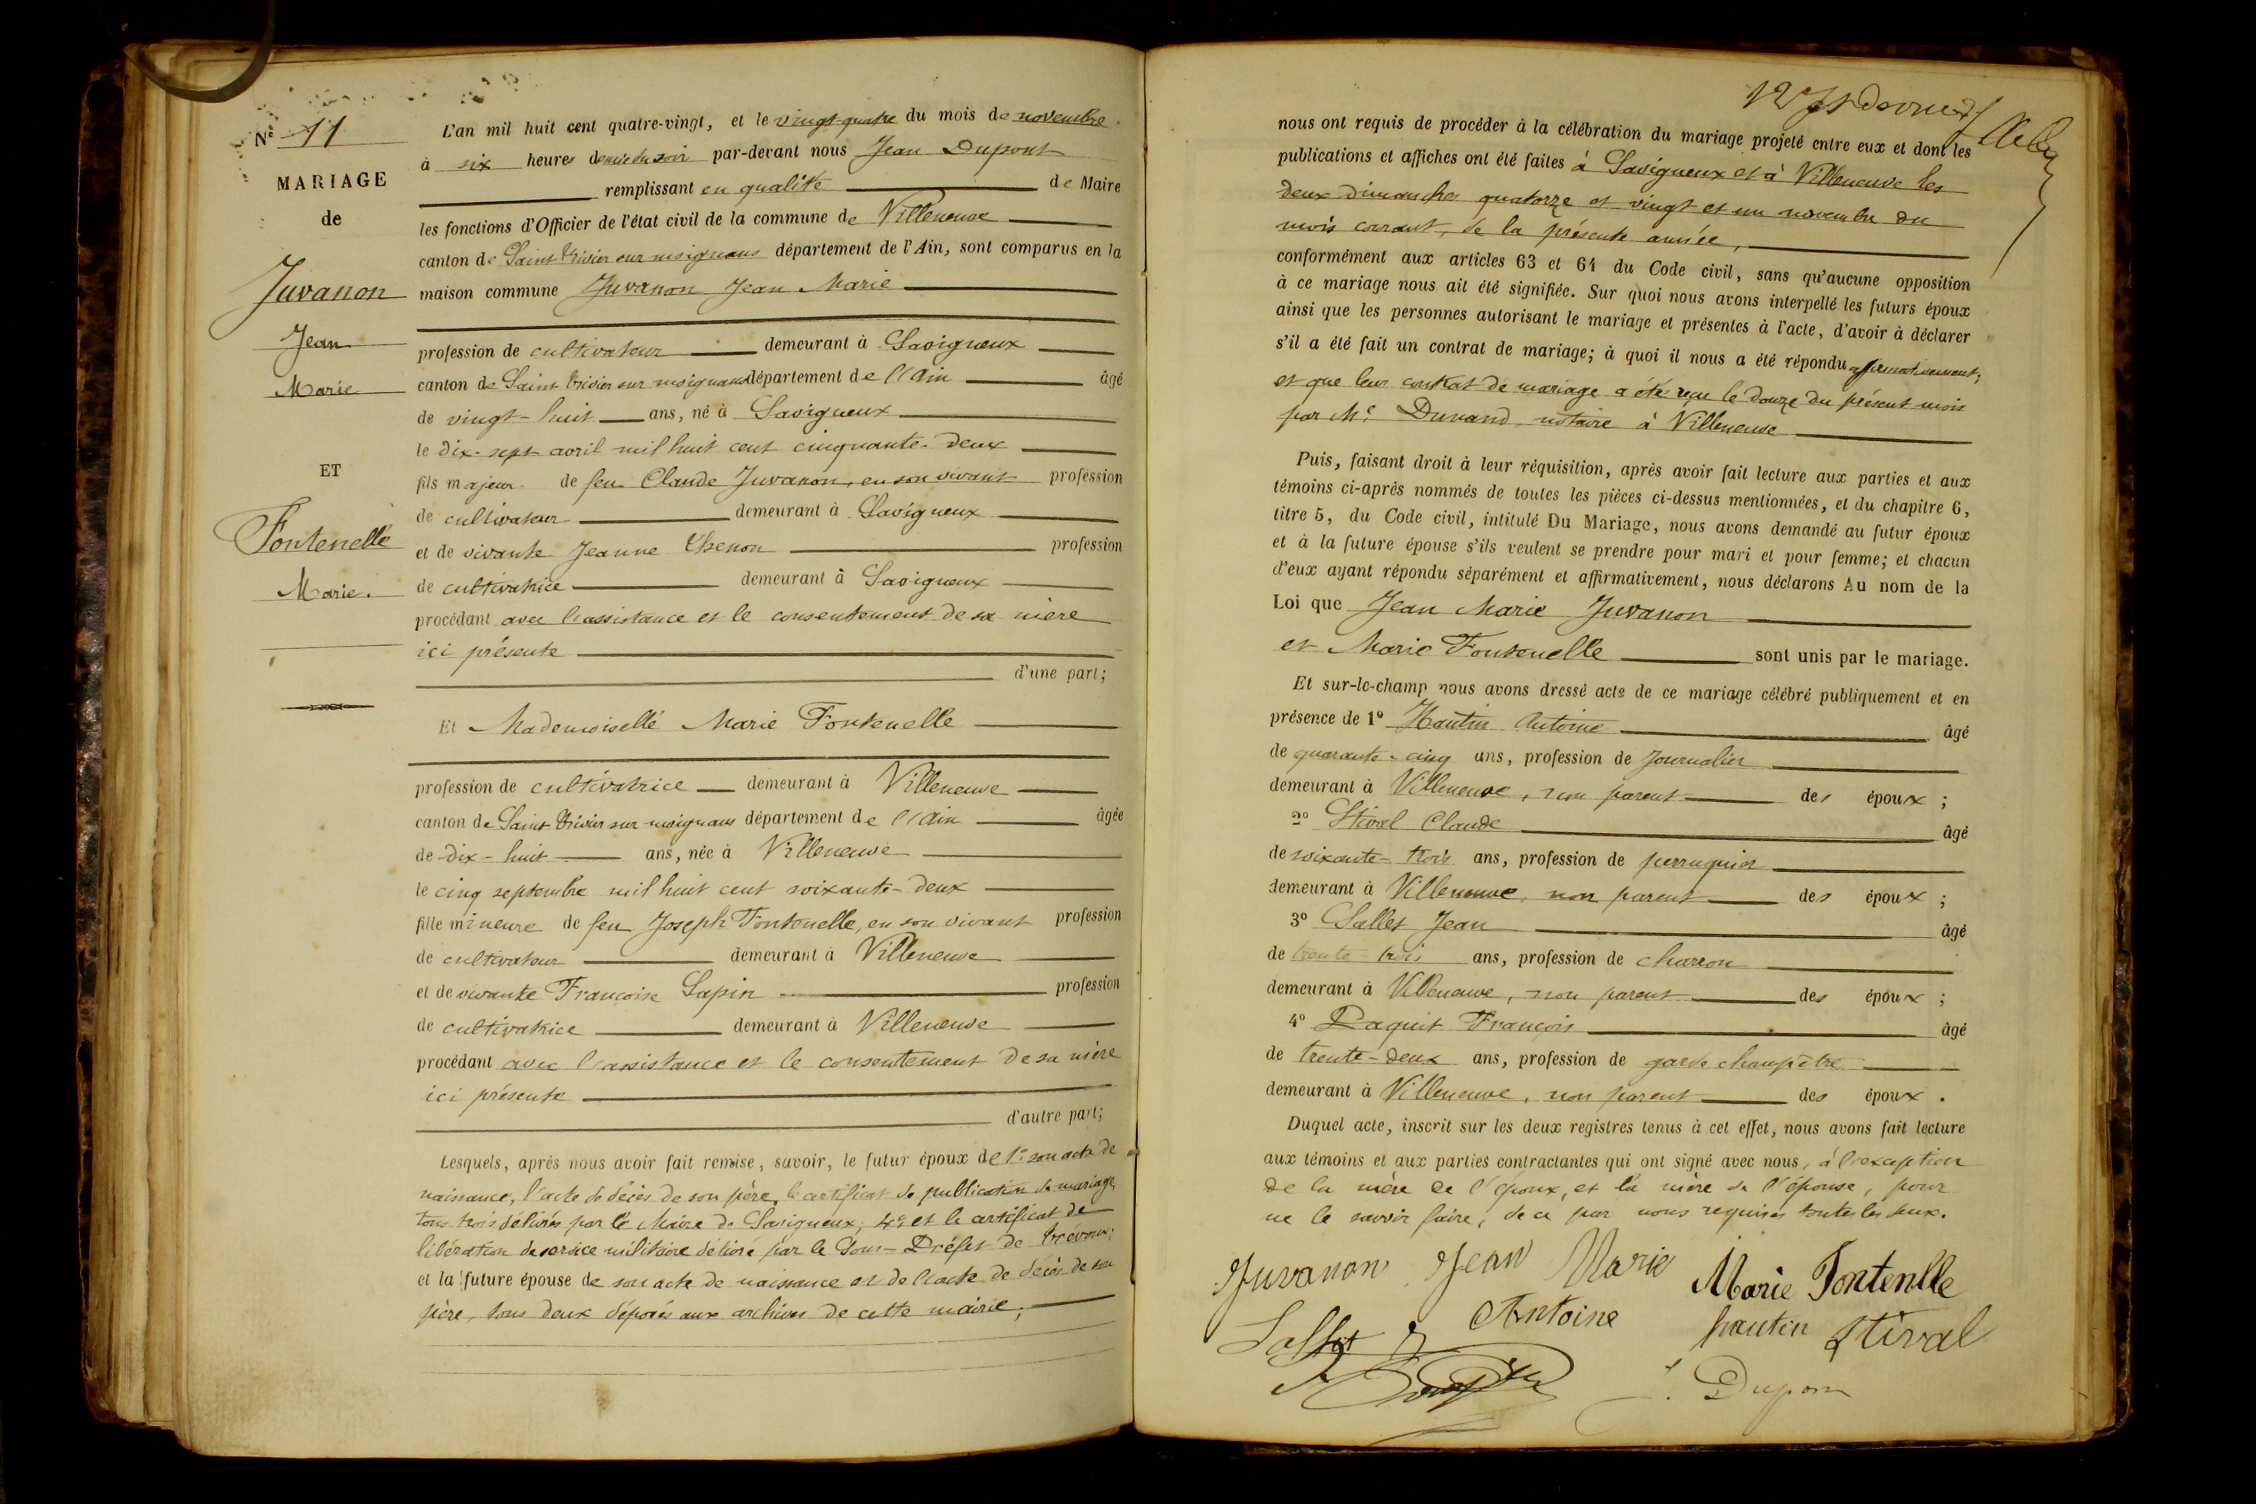 Nº 11
MARIAGE
de
Juvanon
Jean
Marie
ET
Fontenelle
Marie.
L'an mil huit cent quatre-vingt, et le vingt-quatre du mois de novembre
à six heures demie du soir par-devant nous Jean Dupont
remplissant en qualité de Maire
les fonctions d'Officier de l'état civil de la commune de Villeneuve
canton de Saint Trivier sur moignans département de l'Ain, sont comparus en la
maison commune Juvanon Jean Marie
profession de cultivateur demeurant à Savigneux
canton de Saint Trivier sur moignans département de l'Ain âgé
de vingt-huit ans, né à Savigneux
le dix-sept avril mil huit cent cinquante-deux
fils majeur de feu Claude Juvanon, en son vivant profession
de cultivateur demeurant à Savigneux
et de vivante Jeanne Thenon profession
de cultivatrice demeurant à Savigneux
procédant avec l'assistance et le consentement de sa mère
ici présente
d'une part;
Et Mademoiselle Marie Fontenelle
profession de cultivatrice demeurant à Villeneuve
canton de Saint Trivier sur moignans département de l'Ain âgée
de dix-huit ans, née à Villeneuve
le cinq septembre mil huit cent soixante-deux
fille mineure de feu Joseph Fontenelle, en son vivant profession
de cultivateur demeurant à Villeneuve
et de vivante Francoise Sapin profession
de cultivatrice demeurant à Villeneuve
procédant avec l'assistance et le consentement de sa mère
ici présente
d'autre part;
Lesquels, après nous avoir fait remise, savoir, le futur époux de 1º son acte de
naissance, l'acte de décès de son père, le certificat de publication de mariage,
tous trois délivrés par le Maire de Savigneux, 4º et le certificat de
libération de service militaire délivré par le Sous-Préfet de Trévoux;
et la future épouse de son acte de naissance et de l'acte de décès de son
père, tous deux déposés aux archives de cette mairie,
nous ont requis de procéder à la célébration du mariage projeté entre eux et dont les
publications et affiches ont été faites à Savigneux et à Villeneuve les
deux dimanches quatorze et vingt et un novembre du
mois courant, de la présente année,
conformément aux articles 63 et 64 du Code civil, sans qu'aucune opposition
à ce mariage nous ait été signifiée. Sur quoi nous avons interpellé les futurs époux
ainsi que les personnes autorisant le mariage et présentes à l'acte, d'avoir à déclarer
s'il a été fait un contrat de mariage; à quoi il nous a été répondu affirmativement;
et que leur contrat de mariage a été reçu le douze du présent mois
par Me Durand, notaire à Villeneuve
Puis, faisant droit à leur réquisition, après avoir fait lecture aux parties et aux
témoins ci-après nommés de toutes les pièces ci-dessus mentionnées, et du chapitre 6,
titre 5, du Code civil, intitulé Du Mariage, nous avons demandé au futur époux
et à la future épouse s'ils veulent se prendre pour mari et pour femme; et chacun
d'eux ayant répondu séparément et affirmativement, nous déclarons Au nom de la
Loi que Jean Marie Juvanon
et Marie Fontenelle sont unis par le mariage.
Et sur-le-champ nous avons dressé acte de ce mariage célébré publiquement et en
présence de 1º Hautin Antoine âgé
de quarante-cinq ans, profession de Journalier
demeurant à Villeneuve, non parent des époux ;
2º Stival Claude âgé
de soixante-trois ans, profession de perruquier
demeurant à Villeneuve, non parent des époux ;
3º Sallet Jean âgé
de trente-trois ans, profession de charron
demeurant à Villeneuve, non parent des époux ;
4º Paquit François âgé
de trente-deux ans, profession de garde champêtre
demeurant à Villeneuve, non parent des époux .
Duquel acte, inscrit sur les deux registres tenus à cet effet, nous avons fait lecture
aux témoins et aux parties contractantes qui ont signé avec nous, à l'exception
de la mère de l'époux, et la mère de l'épouse, pour
ne le savoir faire, de ce par nous requises toutes les deux.
Juvanon Jean Marie Marie Fontenlle
Sallet J Antoine hautin Stival
J. Dupont